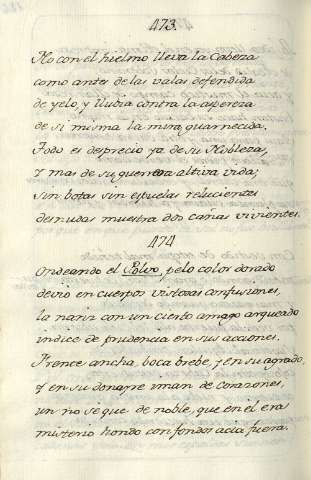 473.
No con el hielmo lleva la Cabeza
como antes de las valas defendida
de yelo, y llubia contra la aspereza
de si misma la mira guarnecida.
Todo es desprecio ya de su Nobleza,
y mas de su guerrera altiva vida;
sin botas sin espuelas relucientes
desnudas muestra dos cañas vivientes.
474
Ondeando el Polvo, pelo color dorado
devio en cuerpos vistosas confusiones,
la nariz con un cierto amago arqueado
indice de prudencia en sus acciones.
Frente ancha, boca brebe, y en su agrado,
y en su donayre iman de corazones,
un no se que de noble, que en él era
misterio hondo con fondos acia fuera.